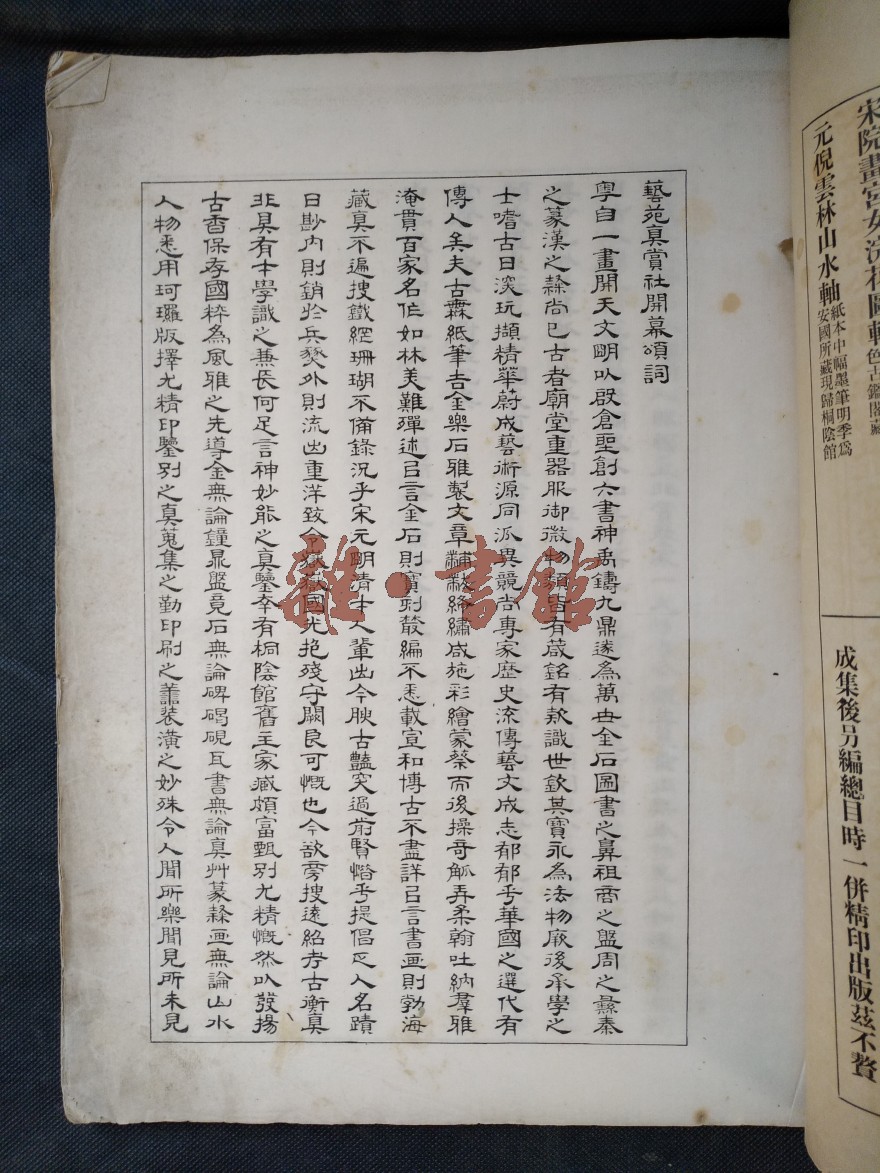 宋院畫宮女浣花圖軸
色古鑑閣藏
元倪雲林山水軸
紙本中幅墨筆明季爲
安國所藏現歸桐陰館
成集後另編總目時一併精印出版茲不贅
藝苑真賞社開幕頌詞
粵自一畫開天文朙以啟倉聖創六書神禹鑄九鼎遂為萬世金石圖書之鼻祖商之盤周之彝秦
之篆漢之隸尚已古者廟堂重器服御微物類皆有箴銘有款識世欽其寶永為法物厥後承學之
士嗜古日深玩擷精華蔚成藝術源同派異競尚專家歷史流傳藝文成志郁郁乎華國之選代有
傳人矣夫古霖紙筆吉金樂石雅製文章黼黻絺繡咸施彩繪蒙蔡而後操奇觚弄柔翰吐納羣雅
淹貫百家名作如林美難殫述以言金石則寶刻叢編不悉載宣和博古不盡詳以言書画則勃海
藏真不遍搜鐵網珊瑚不備錄況乎宋元朙清士人輩出今腴古豔突過前賢惜乎提倡乏人名蹟
日尠內則銷於兵燹外則流出重洋致令嶽嶽國光抱殘守闕良可慨也今欲旁搜遠紹考古衡真
非具有才學識之兼長何足言神妙能之真鑒幸有桐陰館舊主家藏頗富甄別尤精慨然以發揚
古香保存國粹為風雅之先導金無論鐘鼎盤竟石無論碑碣硯瓦書無論真艸篆隸画無論山水
人物悉用珂羅版擇尤精印鑒別之真蒐集之勤印刷之善裝潢之妙殊令人聞所樂聞見所未見
雜·書館